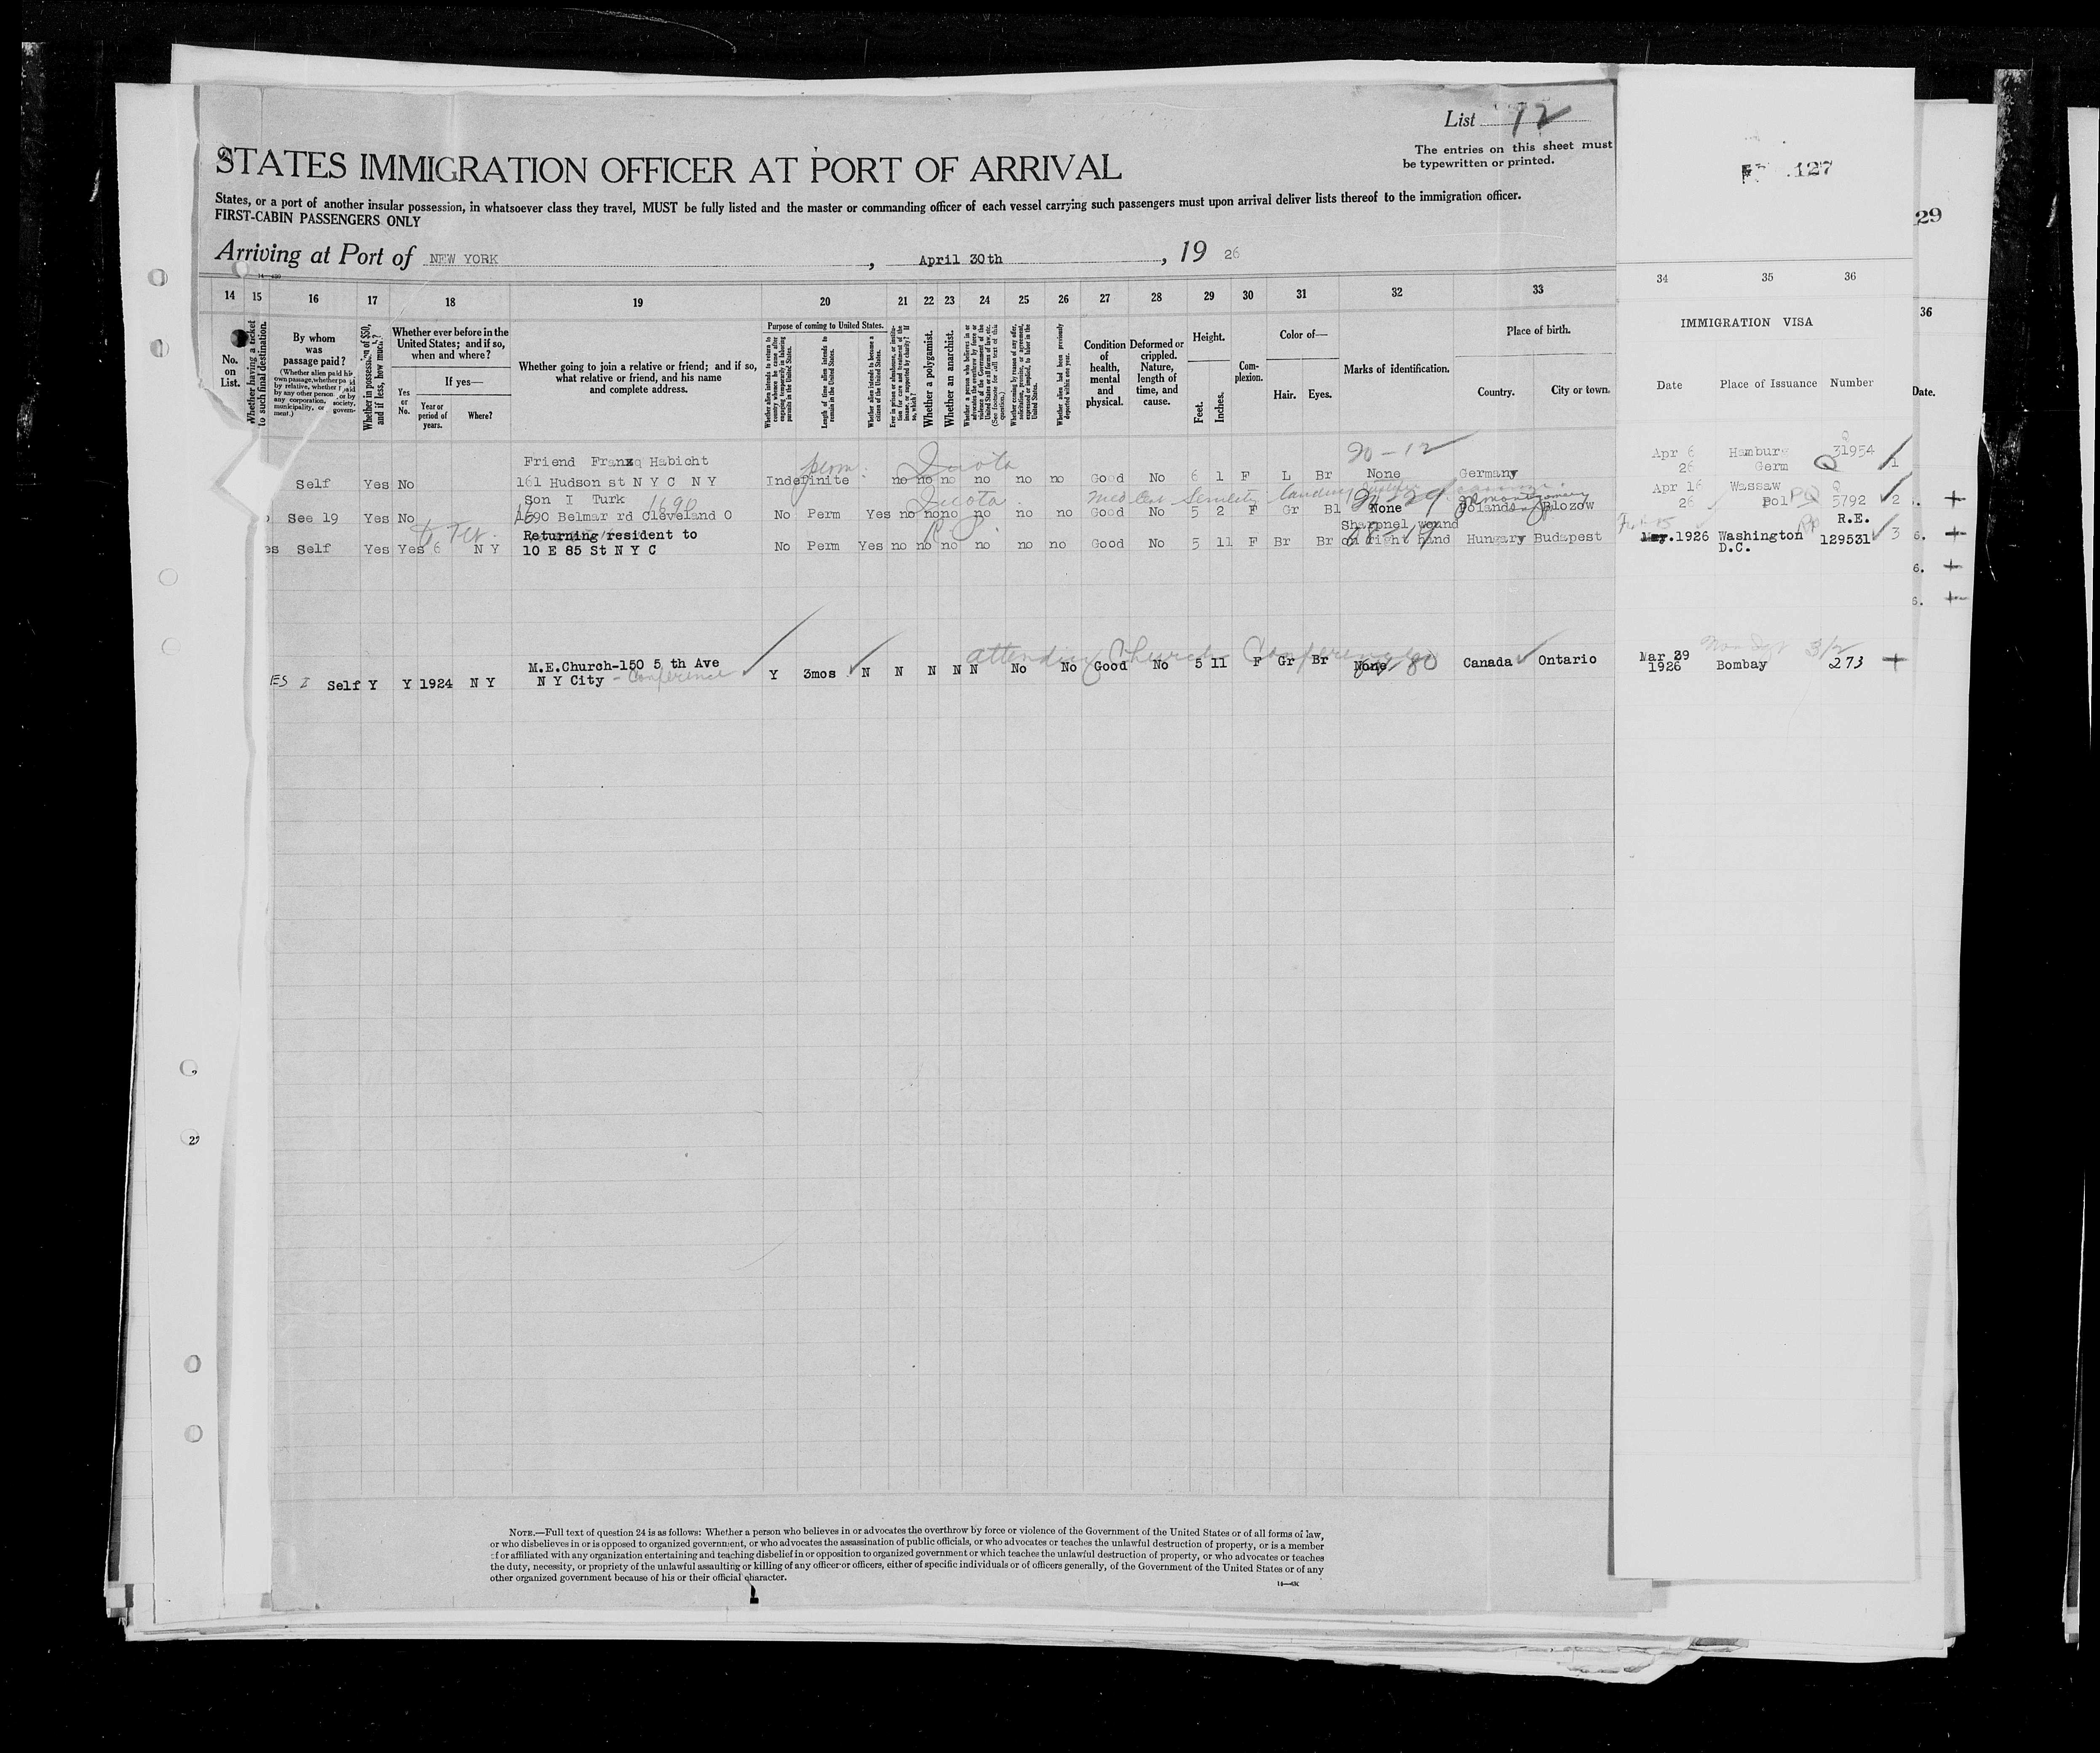 List 12
The entries on this sheet must
be typewritten or printed.
STATES IMMIGRATION OFFICER AT PORT OF ARRIVAL
States, or a port of another insular possession, in whatsoever class they travel, MUST be fully listed and the master or commanding officer of each vessel carrying such passengers must upon arrival deliver lists thereof to the immigration officer.
FIRST-CABIN PASSENGERS ONLY
Arriving at Port of NEW YORK, April 30th, 19 26
127
29
14 15 16 17 18 19 20 21 22 23 24 25 26 27 28 29 30 31 32 33 34 35 36
36
No. on List.
Whether having a ticket to such final destination.
By whom was passage paid?
Whether in possession of $50, and if less, how much?
Whether ever before in the United States; and if so, when and where?
Yes or No.
If yes—
Year or period of years.
Where?
Whether going to join a relative or friend; and if so, what relative or friend, and his name and complete address.
Purpose of coming to United States.
Whether alien intends to return to country whence he came after engaging temporarily in laboring pursuits in the United States.
Length of time alien intends to remain in the United States.
Whether alien intends to become a citizen of the United States.
Whether a polygamist.
Whether an anarchist.
Whether alien had been previously deported within one year.
Condition of health, mental and physical.
Deformed or crippled. Nature, length of time, and cause.
Height.
Feet. Inches.
Complexion.
Color of—
Hair. Eyes.
Marks of identification.
Place of birth.
Country. City or town.
IMMIGRATION VISA
Date Place of Issuance Number
Date.
Friend Franz Habicht
perm. Quota 20-12
Self Yes No 161 Hudson st N Y C N Y Indefinite no no no no no no Good No 6 1 F L Br None Germany Apr 6 26 Hamburg Germ Q 31954 1
Son I Turk 1690
Quota
See 19 Yes No 1690 Belmar rd Cleveland O No Perm Yes no no no no no no Good No 5 2 F Gr Bl None Poland Blozow Apr 16 26 Wassaw Pol Q 5792 2
Returning resident to
Self Yes Yes 6 N Y 10 E 85 St N Y C No Perm Yes no no no no no no Good No 5 11 F Br Br Sharpnel wound on right hand Hungary Budapest 1926 Washington D.C. R.E. 129531 3
attending Church Conference
M.E.Church-150 5 th Ave
ES I Self Y Y 1924 N Y N Y City - Conference Y 3mos N N N N N No No Good No 5 11 F Gr Br None Canada Ontario Mar 29 1926 Bombay 273
NOTE.—Full text of question 24 is as follows: Whether a person who believes in or advocates the overthrow by force or violence of the Government of the United States or of all forms of law,
or who disbelieves in or is opposed to organized government, or who advocates the assassination of public officials, or who advocates or teaches the unlawful destruction of property, or is a member
of or affiliated with any organization entertaining and teaching disbelief in or opposition to organized government or which teaches the unlawful destruction of property, or who advocates or teaches
the duty, necessity, or propriety of the unlawful assaulting or killing of any officer or officers, either of specific individuals or of officers generally, of the Government of the United States or of any
other organized government because of his or their official character.